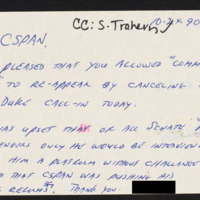 CC: S. Traher
10.2X.90
CSPAN,
PLEASED THAT YOU ALLOWED "COMM
" TO RE-APPEAR BY CANCELING
DUKE CALL-IN TODAY.
AS UPSET THAT OF ALL SENATE
ONLY HE WOULD BE INTERVIEW
HIM A PLATFORM WITHOUT CHALLENGE
THAT CSPAN WAS PUSHING HIS
THANK YOU